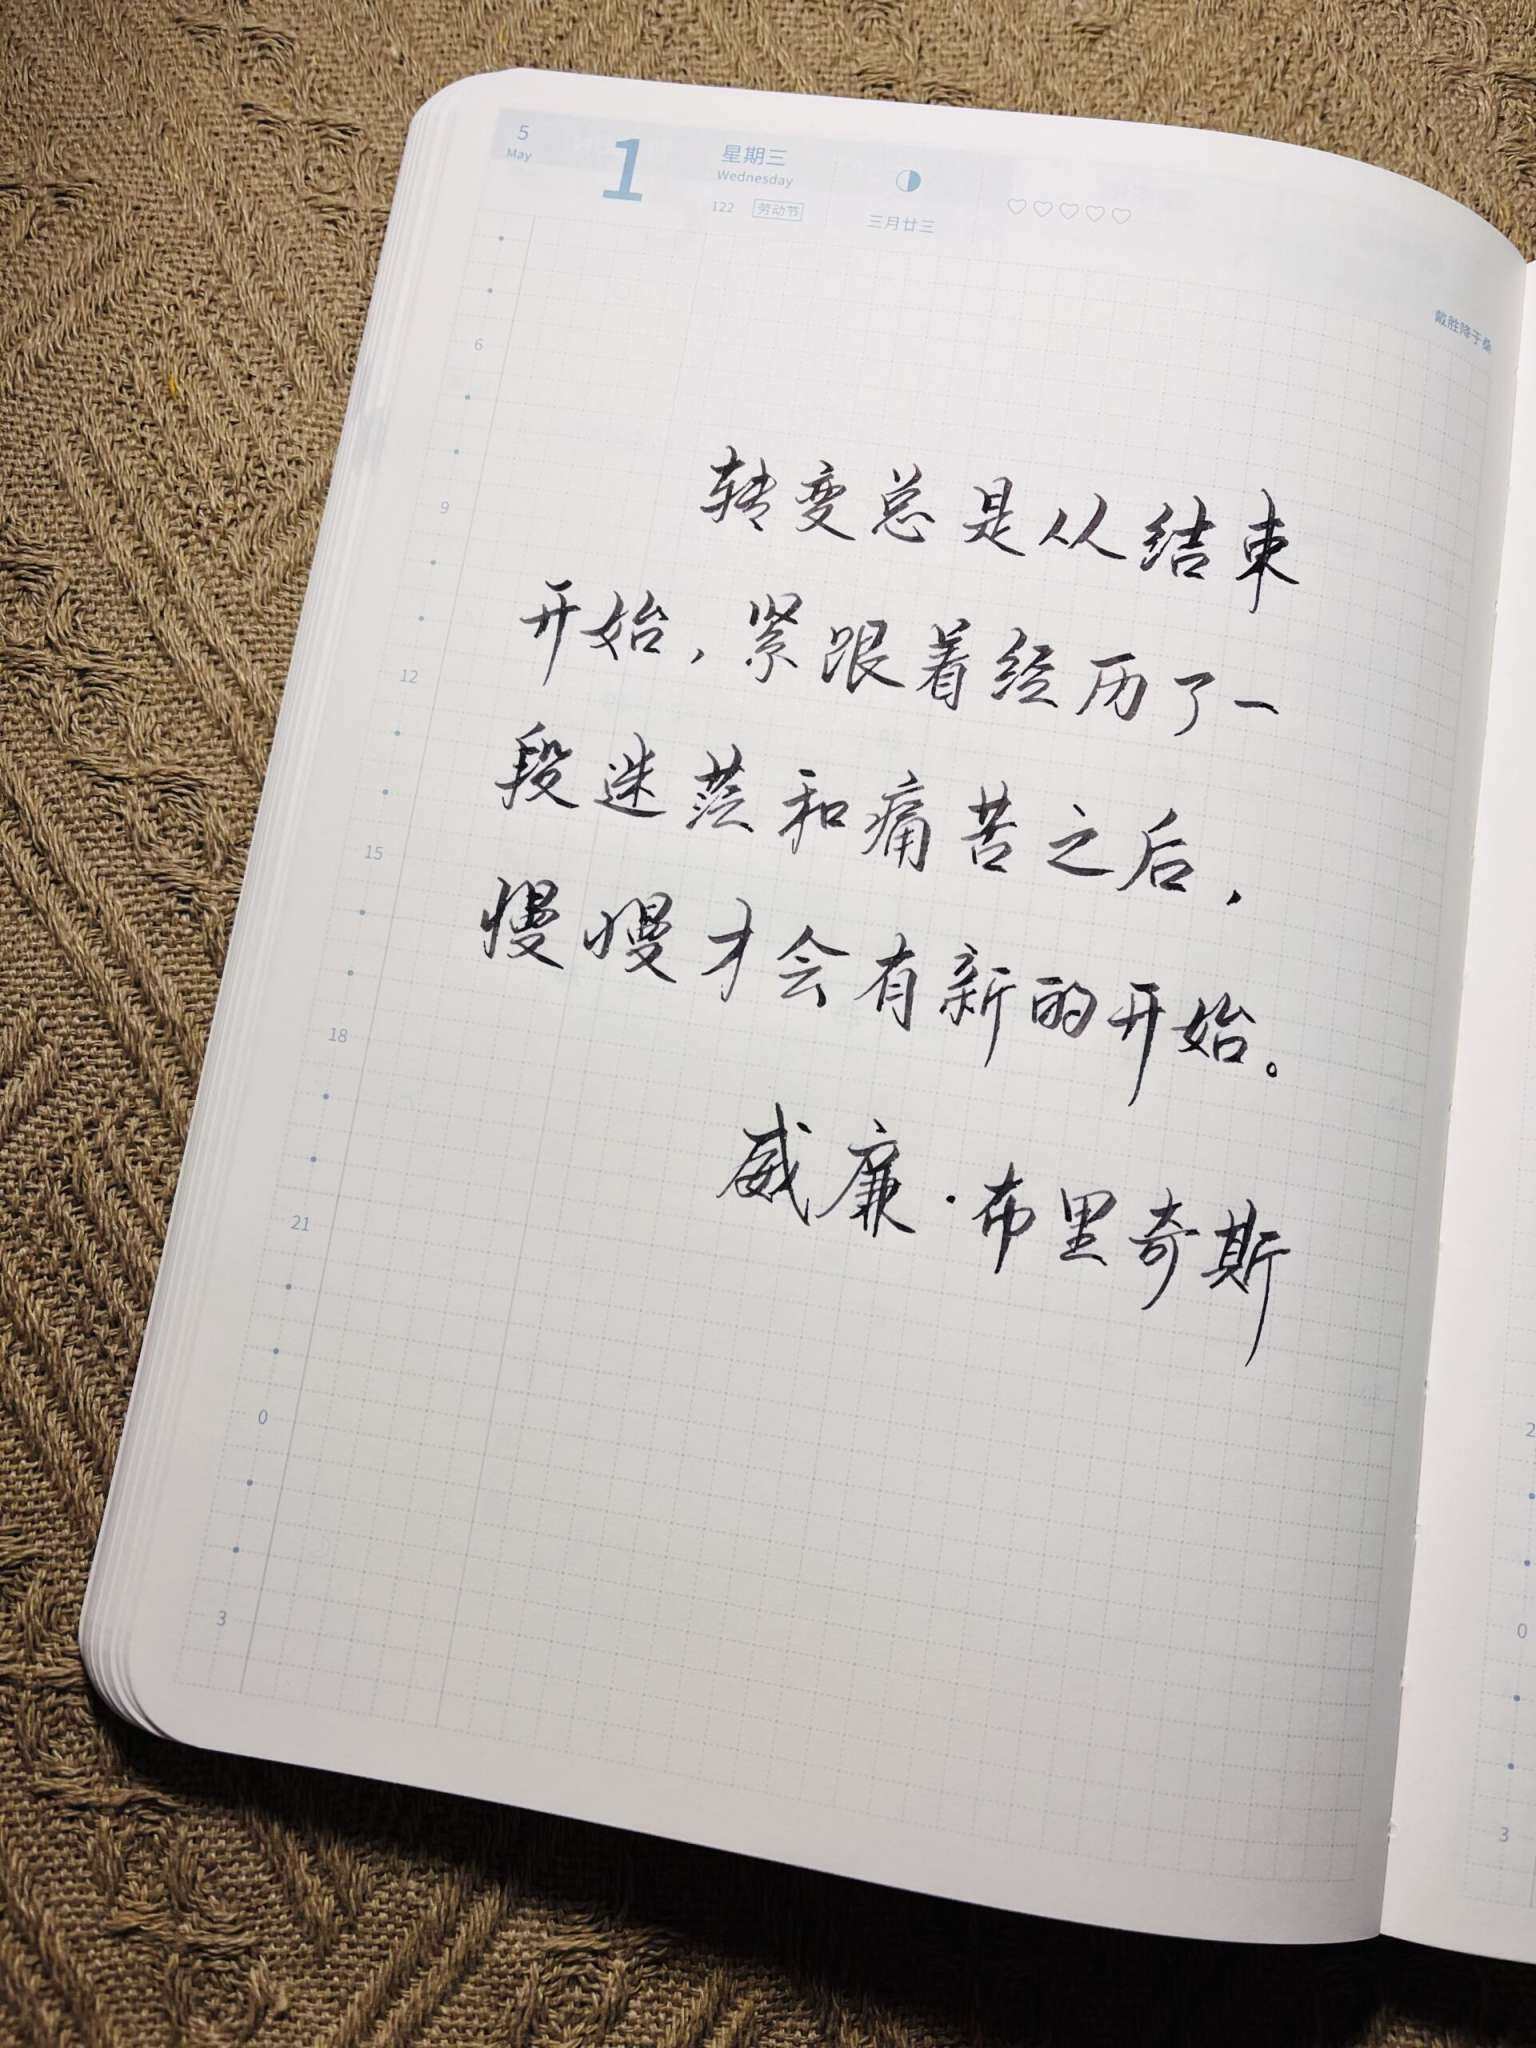 5
May
1
星期三
Wednesday
122 劳动节
三月廿三
戴胜降于桑
6
9
12
15
18
21
0
3
转变总是从结束
开始,紧跟着经历了一
段迷茫和痛苦之后,
慢慢才会有新的开始。
威廉·布里奇斯
0
3